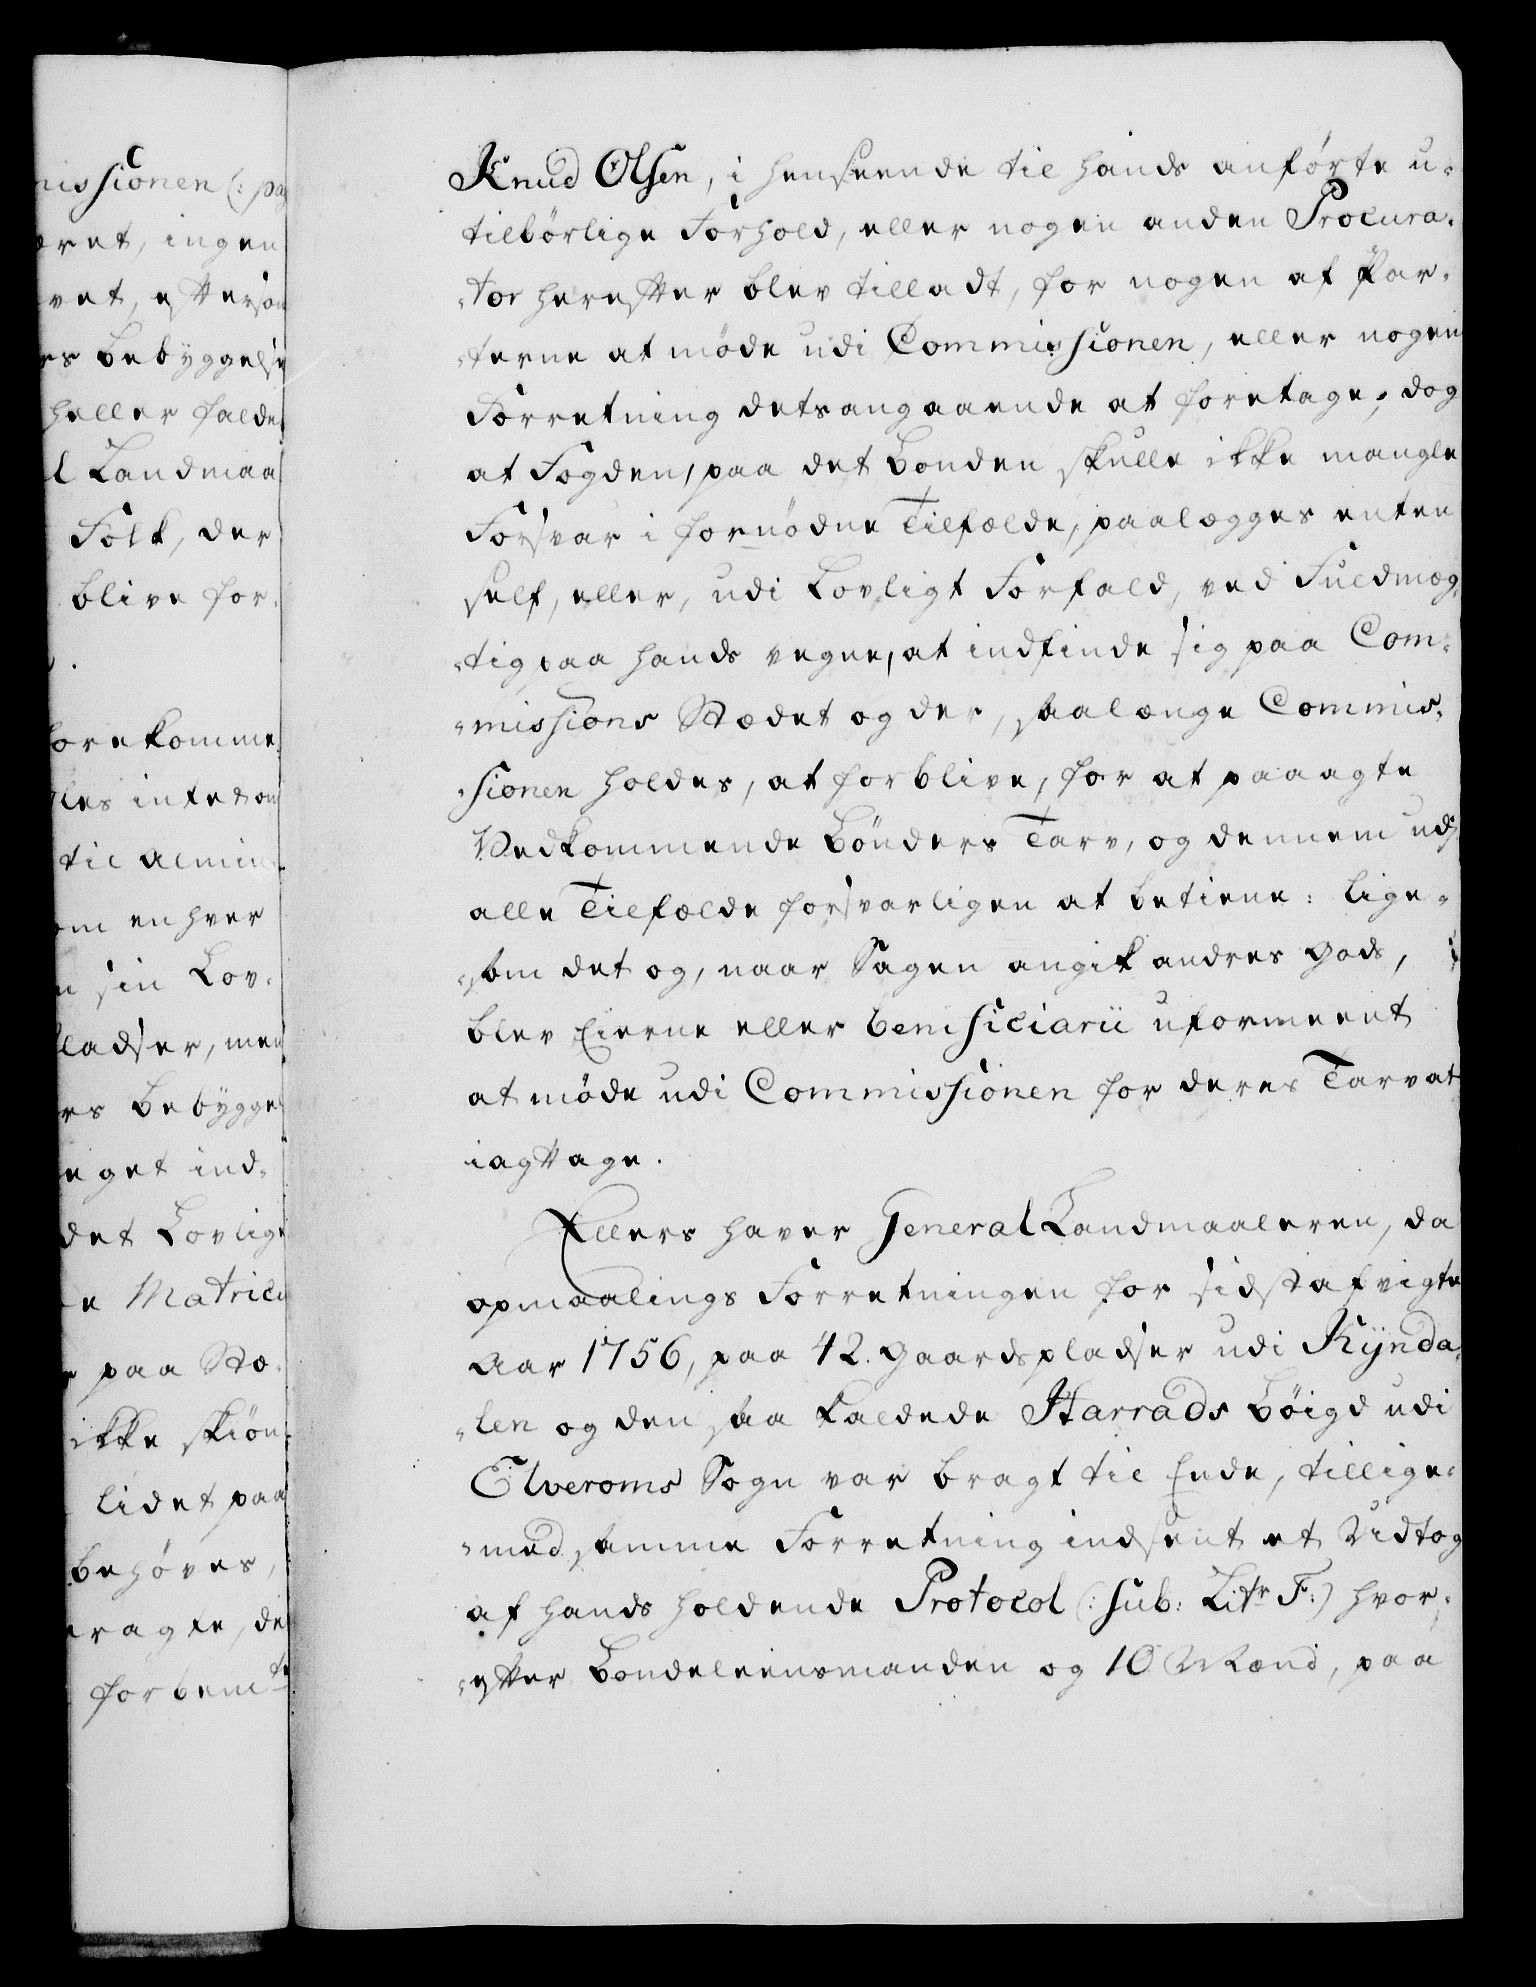 missionen (: paa
æret, ingen
vet, eftersom
rs bebyggelse
heller falde
l Landmaa
Folk, der
blive for-
forekomme
les intet om
til almin
om enhver
n sin Lov-
ladser, men
rs bebygge
eget ind-
det Lovlige
e Matricu
paa Stæ-
ikke skiøn-
lidet paa
behøves,
ragte, de
forbemte
Knud Olsen, i henseende til hands anførte u-
tilbørlige Forhold, eller nogen anden Procura-
-tor herefter blev tilladt, for nogen af Par-
-terne at møde udi Commissionen, eller nogen
Forretning detsangaaende at foretage; dog
at Fogden, paa det Bonden skulle ikke mangle
Forsvar i fornødne Tilfælde, paalægges enten
self, eller, udi Lovligt Forfald, ved Fuldmæg-
-tig paa hands vegne, at indfinde sig paa Com-
-missions Stædet og der, saalænge Commis-
-sionen holdes, at forblive, for at paaagte
Vedkommende Bønders Tarv, og dennem udj
alle Tilfælde forsvarligen at betiene: lige-
-som det og, naar Sagen angik andres Gods,
blev Eierne eller benificiarii uformeent
at møde udi Commissionen for deres Tarv at
iagttage.
Ellers haver General Landmaaleren, da
opmaalings Forretningen for sidstafvigte
Aar 1756, paa 42. Gaardspladser udi Rÿnda-
-len og den saa kaldede Harrads Bøigd udi
Elveroms Sogn var bragt til Ende, tillige-
-med samme Forretning indsent et Udtog
af hands holdende Protocol (: sub: Litr F:) hvor-
-efter Bondeleensmanden og 10 Mænd, paa